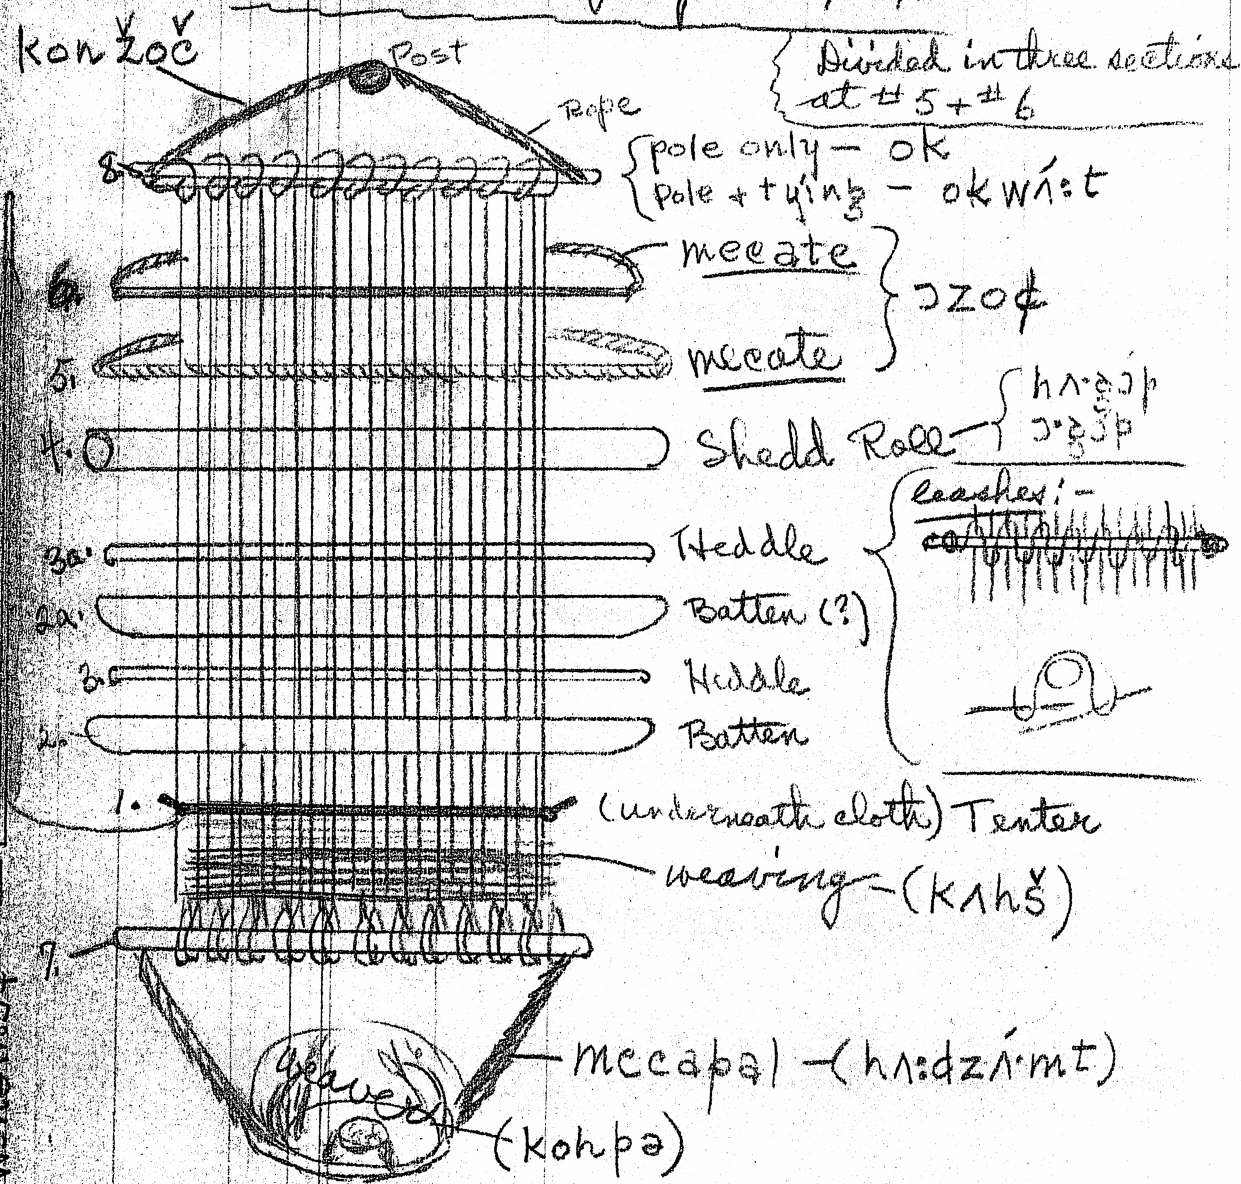 kon žoč
Post
Divided in three sections
at # 5 + # 6
Rope
8.
pole only – ok
pole + tying – okwʌ́:t
6.
mecate
ɔzo¢
5.
mecate
4.
Shedd Roll
leashes:-
3a.
Heddle
2a.
Batten (?)
3.
Heddle
2.
Batten
1.
(underneath cloth) Tenter
weaving – (kʌhš)
7.
mecapal – (hʌ:dzʌ́·mt)
weaver
(kohpə)